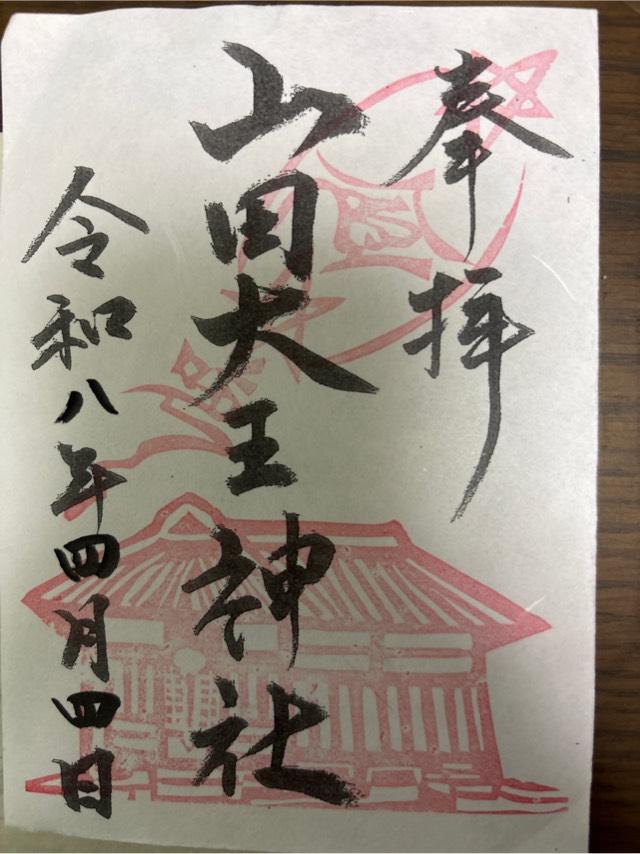 奉拝
山田大王神社
令和八年四月四日